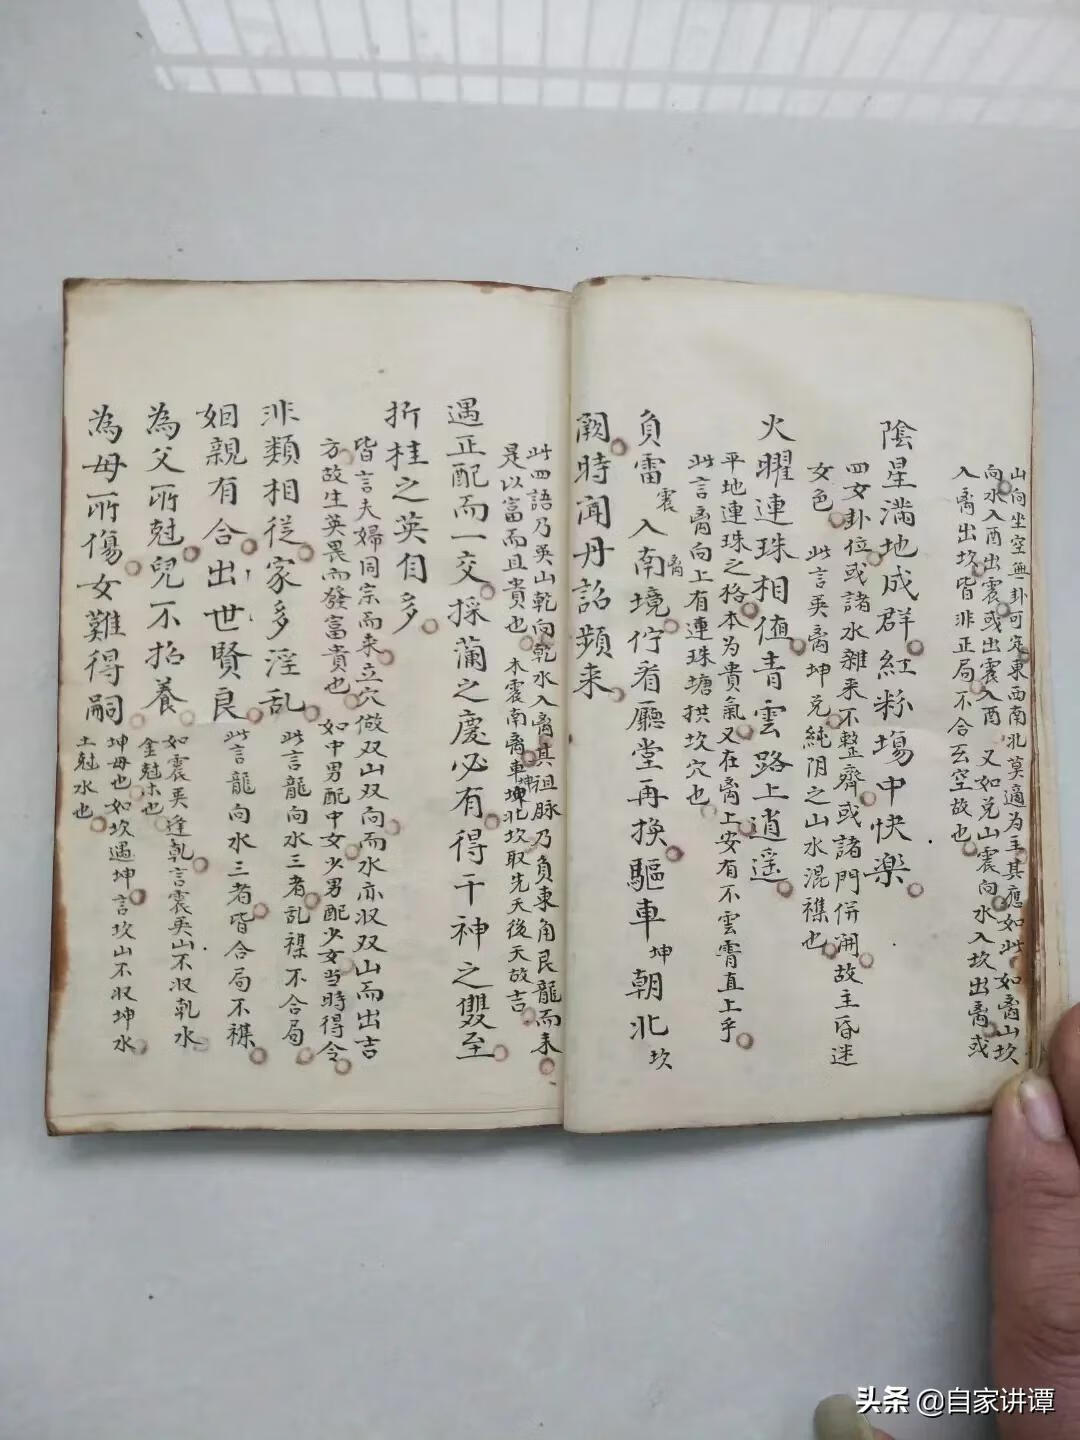 山向坐空無卦可定東西南北莫適為主其應如此如离山坎
向水入酉出震或出震入酉又如兑山震向水入坎出离或
入离出坎皆非正局不合玄空故也
陰星满地成群紅粉塲中快樂
四女卦位或諸水雜来不整齊或諸門併開故主昏迷
女色此言巽离坤兑純阴之山水混襍也
火曜連珠相值青雲路上逍遥
平地連珠之格本为貴氣又在离上安有不雲霄直上乎
此言离向上有連珠塘拱坎穴也
負雷震入南离境佇看廳堂再换驅車坤朝北坎
阙時闻丹詔頻来
此四語乃巽山乾向乾水入离其祖脉乃負東角艮龍而来
是以富而且貴也木震南离車坤北坎取先天後天故吉
遇正配而一交採蘭之慶必有得干神之雙至
折桂之英自多
皆言夫婦同宗而来立穴做双山双向而水亦収双山而出吉
方故生英畏而發富貴也如中男配中女少男配少女当時得令
非類相從家多淫乱
此言龍向水三者乱襍不合局
姻親有合出世賢良
此言龍向水三者皆合局不襍
為父所尅兒不招養
如震巽逢乾言震巽山不収乾水
金尅木也
為母所傷女難得嗣
坤母也如坎遇坤言坎山不収坤水
土尅水也
头条 @自家讲谭